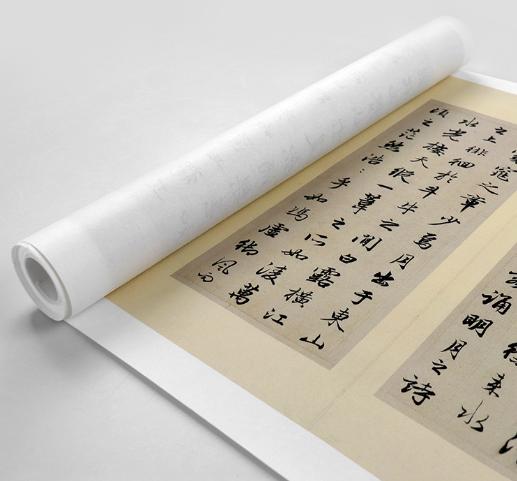 誦明月之詩
窕之章少焉月出于東山
之上徘徊於斗牛之間白露橫江
水光接天縱一葦之所如凌萬
頃之茫然浩浩乎如馮虛御風而